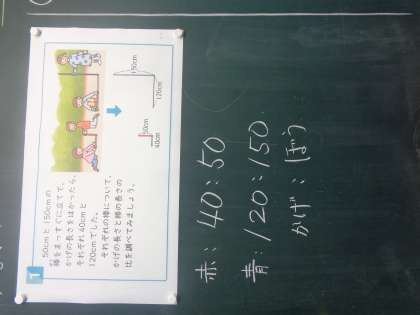 1
50cmと150cmの
棒をまっすぐに立てて、
かげの長さをはかったら、
それぞれ40cmと
120cmでした。
それぞれの棒について、
かげの長さと棒の長さの
比を調べてみましょう。
50cm
40cm
150cm
120cm
赤：40：50
青：120：150
かげ：ぼう